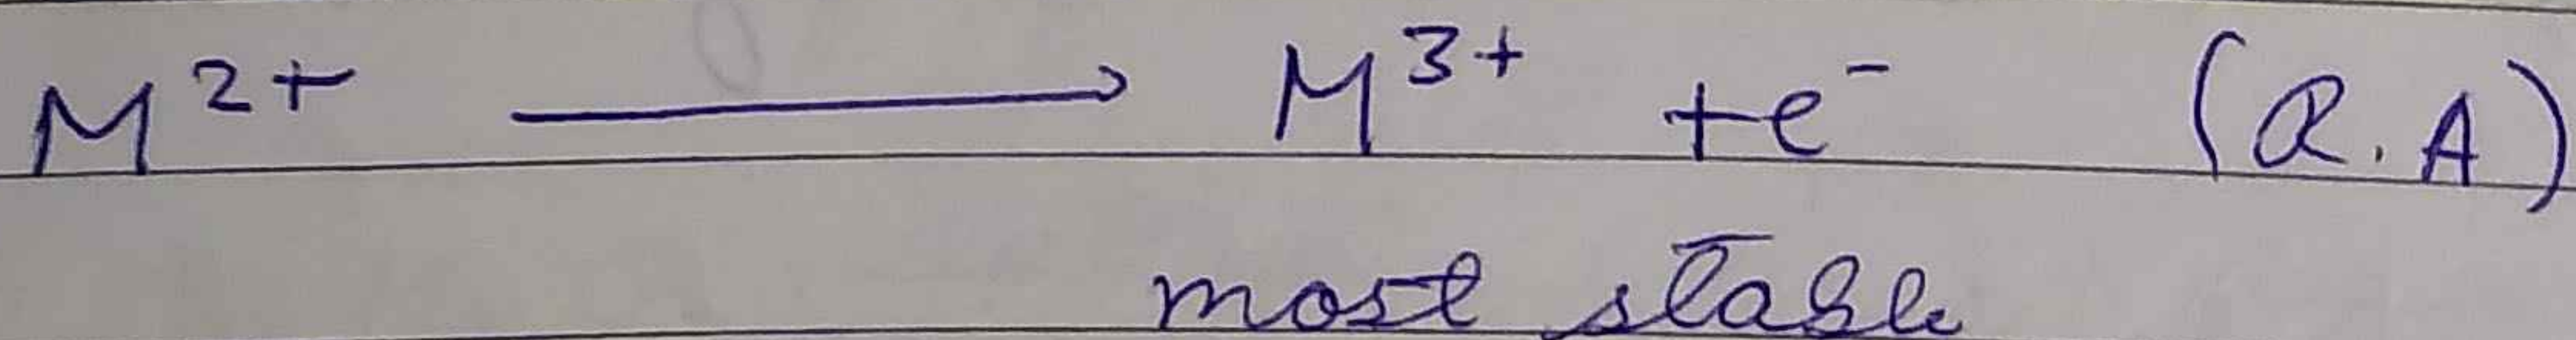 M²⁺ ⟶ M³⁺ + e⁻ (R.A)
most stable